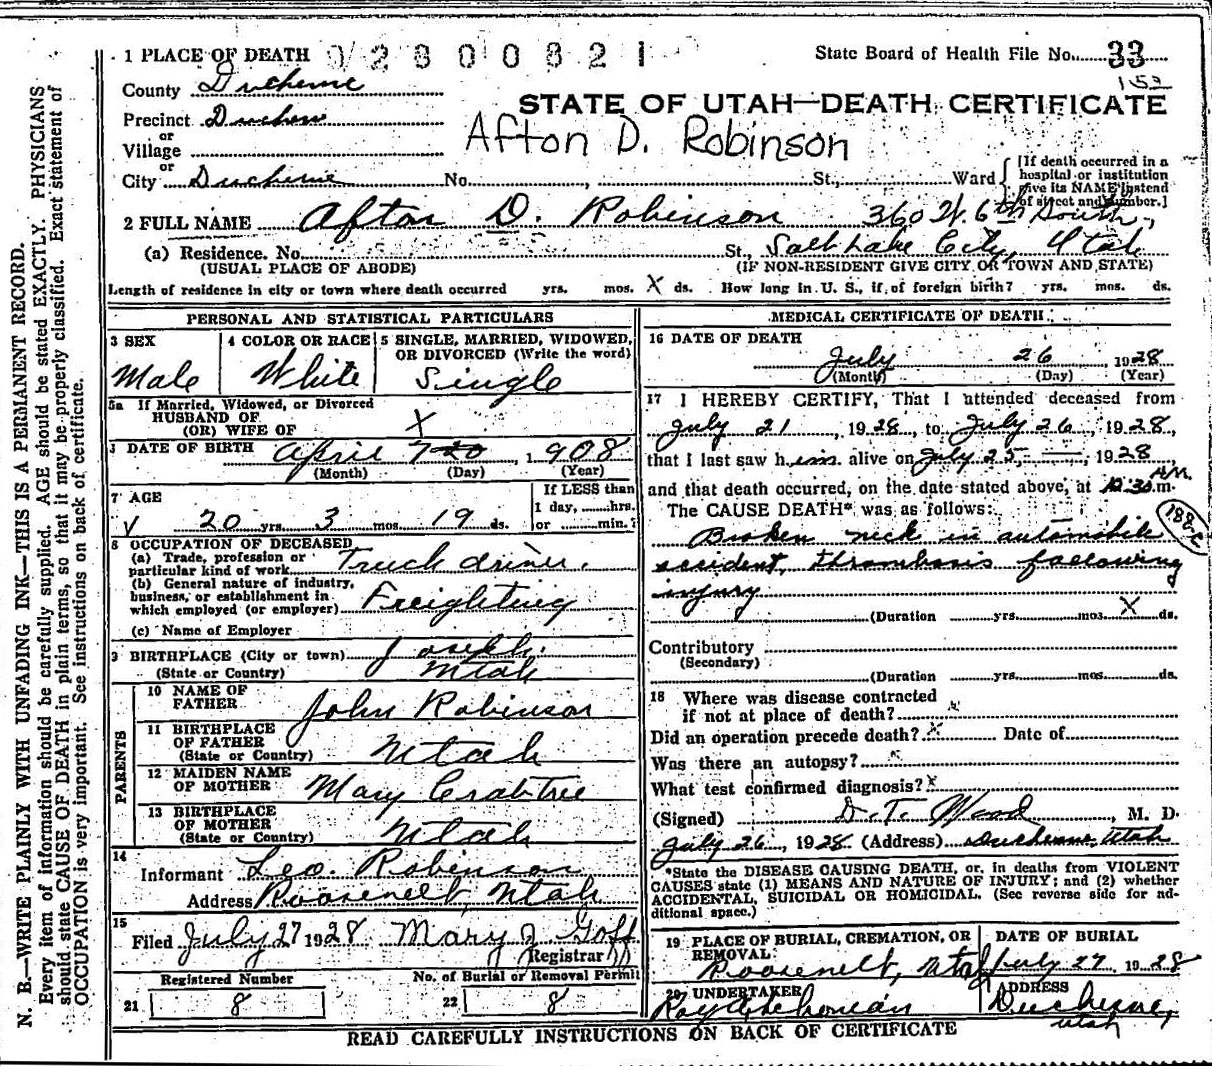 1 PLACE OF DEATH 02800821 State Board of Health File No. 33
152
County Duchesne
STATE OF UTAH—DEATH CERTIFICATE
Precinct Duchesne
Afton D. Robinson
or
Village
or
City Duchesne No. , St., Ward
[If death occurred in a hospital or institution give its NAME instead of street and number.]
2 FULL NAME Afton D. Robinson 360 W. 6th South,
(a) Residence. No. St., Salt Lake City, Utah
(USUAL PLACE OF ABODE) (IF NON-RESIDENT GIVE CITY OR TOWN AND STATE)
Length of residence in city or town where death occurred yrs. mos. X ds. How long in U. S., if of foreign birth? yrs. mos. ds.
PERSONAL AND STATISTICAL PARTICULARS
3 SEX
Male
4 COLOR OR RACE
White
5 SINGLE, MARRIED, WIDOWED, OR DIVORCED (Write the word)
Single
5a If Married, Widowed, or Divorced
HUSBAND OF
(OR) WIFE OF X
DATE OF BIRTH April 7 20, 1908
(Month) (Day) (Year)
7 AGE
20 yrs. 3 mos. 19 ds.
If LESS than
1 day, hrs.
or min.?
8 OCCUPATION OF DECEASED
(a) Trade, profession or
particular kind of work Truck driver.
(b) General nature of industry,
business, or establishment in
which employed (or employer) Freighting
(c) Name of Employer
9 BIRTHPLACE (City or town) Joseph.
(State or Country) Utah
PARENTS
10 NAME OF
FATHER John Robinson
11 BIRTHPLACE
OF FATHER
(State or Country) Utah
12 MAIDEN NAME
OF MOTHER Mary Crabtree
13 BIRTHPLACE
OF MOTHER
(State or Country) Utah
14
Informant Leo. Robinson
Address Roosevelt, Utah
15
Filed July 27 1928 Mary J Goff
Registrar
Registered Number No. of Burial or Removal Permit
21 8 22 8
MEDICAL CERTIFICATE OF DEATH
16 DATE OF DEATH
July 26, 1928
(Month) (Day) (Year)
17 I HEREBY CERTIFY, That I attended deceased from
July 21, 1928, to July 26, 1928,
that I last saw him alive on July 25, 1928
and that death occurred, on the date stated above, at 12:30 A.M. m.
The CAUSE DEATH* was as follows: 188-c
Broken neck in automobile
accident, thrombosis following
injury
(Duration yrs. mos. X ds.
Contributory
(Secondary)
(Duration yrs. mos. ds.
18 Where was disease contracted
if not at place of death?
Did an operation precede death? X Date of
Was there an autopsy? X
What test confirmed diagnosis? X
(Signed) D. T. Wood, M. D.
July 26, 1928 (Address) Duchesne, Utah
*State the DISEASE CAUSING DEATH, or, in deaths from VIOLENT
CAUSES state (1) MEANS AND NATURE OF INJURY; and (2) whether
ACCIDENTAL, SUICIDAL OR HOMICIDAL. (See reverse side for ad-
ditional space.)
19 PLACE OF BURIAL, CREMATION, OR
REMOVAL
Roosevelt, Utah
DATE OF BURIAL
July 27 1928
20 UNDERTAKER
Roy
ADDRESS
Duchesne,
Utah
READ CAREFULLY INSTRUCTIONS ON BACK OF CERTIFICATE
N. B.—WRITE PLAINLY WITH UNFADING INK—THIS IS A PERMANENT RECORD.
Every item of information should be carefully supplied. AGE should be stated EXACTLY. PHYSICIANS
should state CAUSE OF DEATH in plain terms, so that it may be properly classified. Exact statement of
OCCUPATION is very important. See instructions on back of certificate.